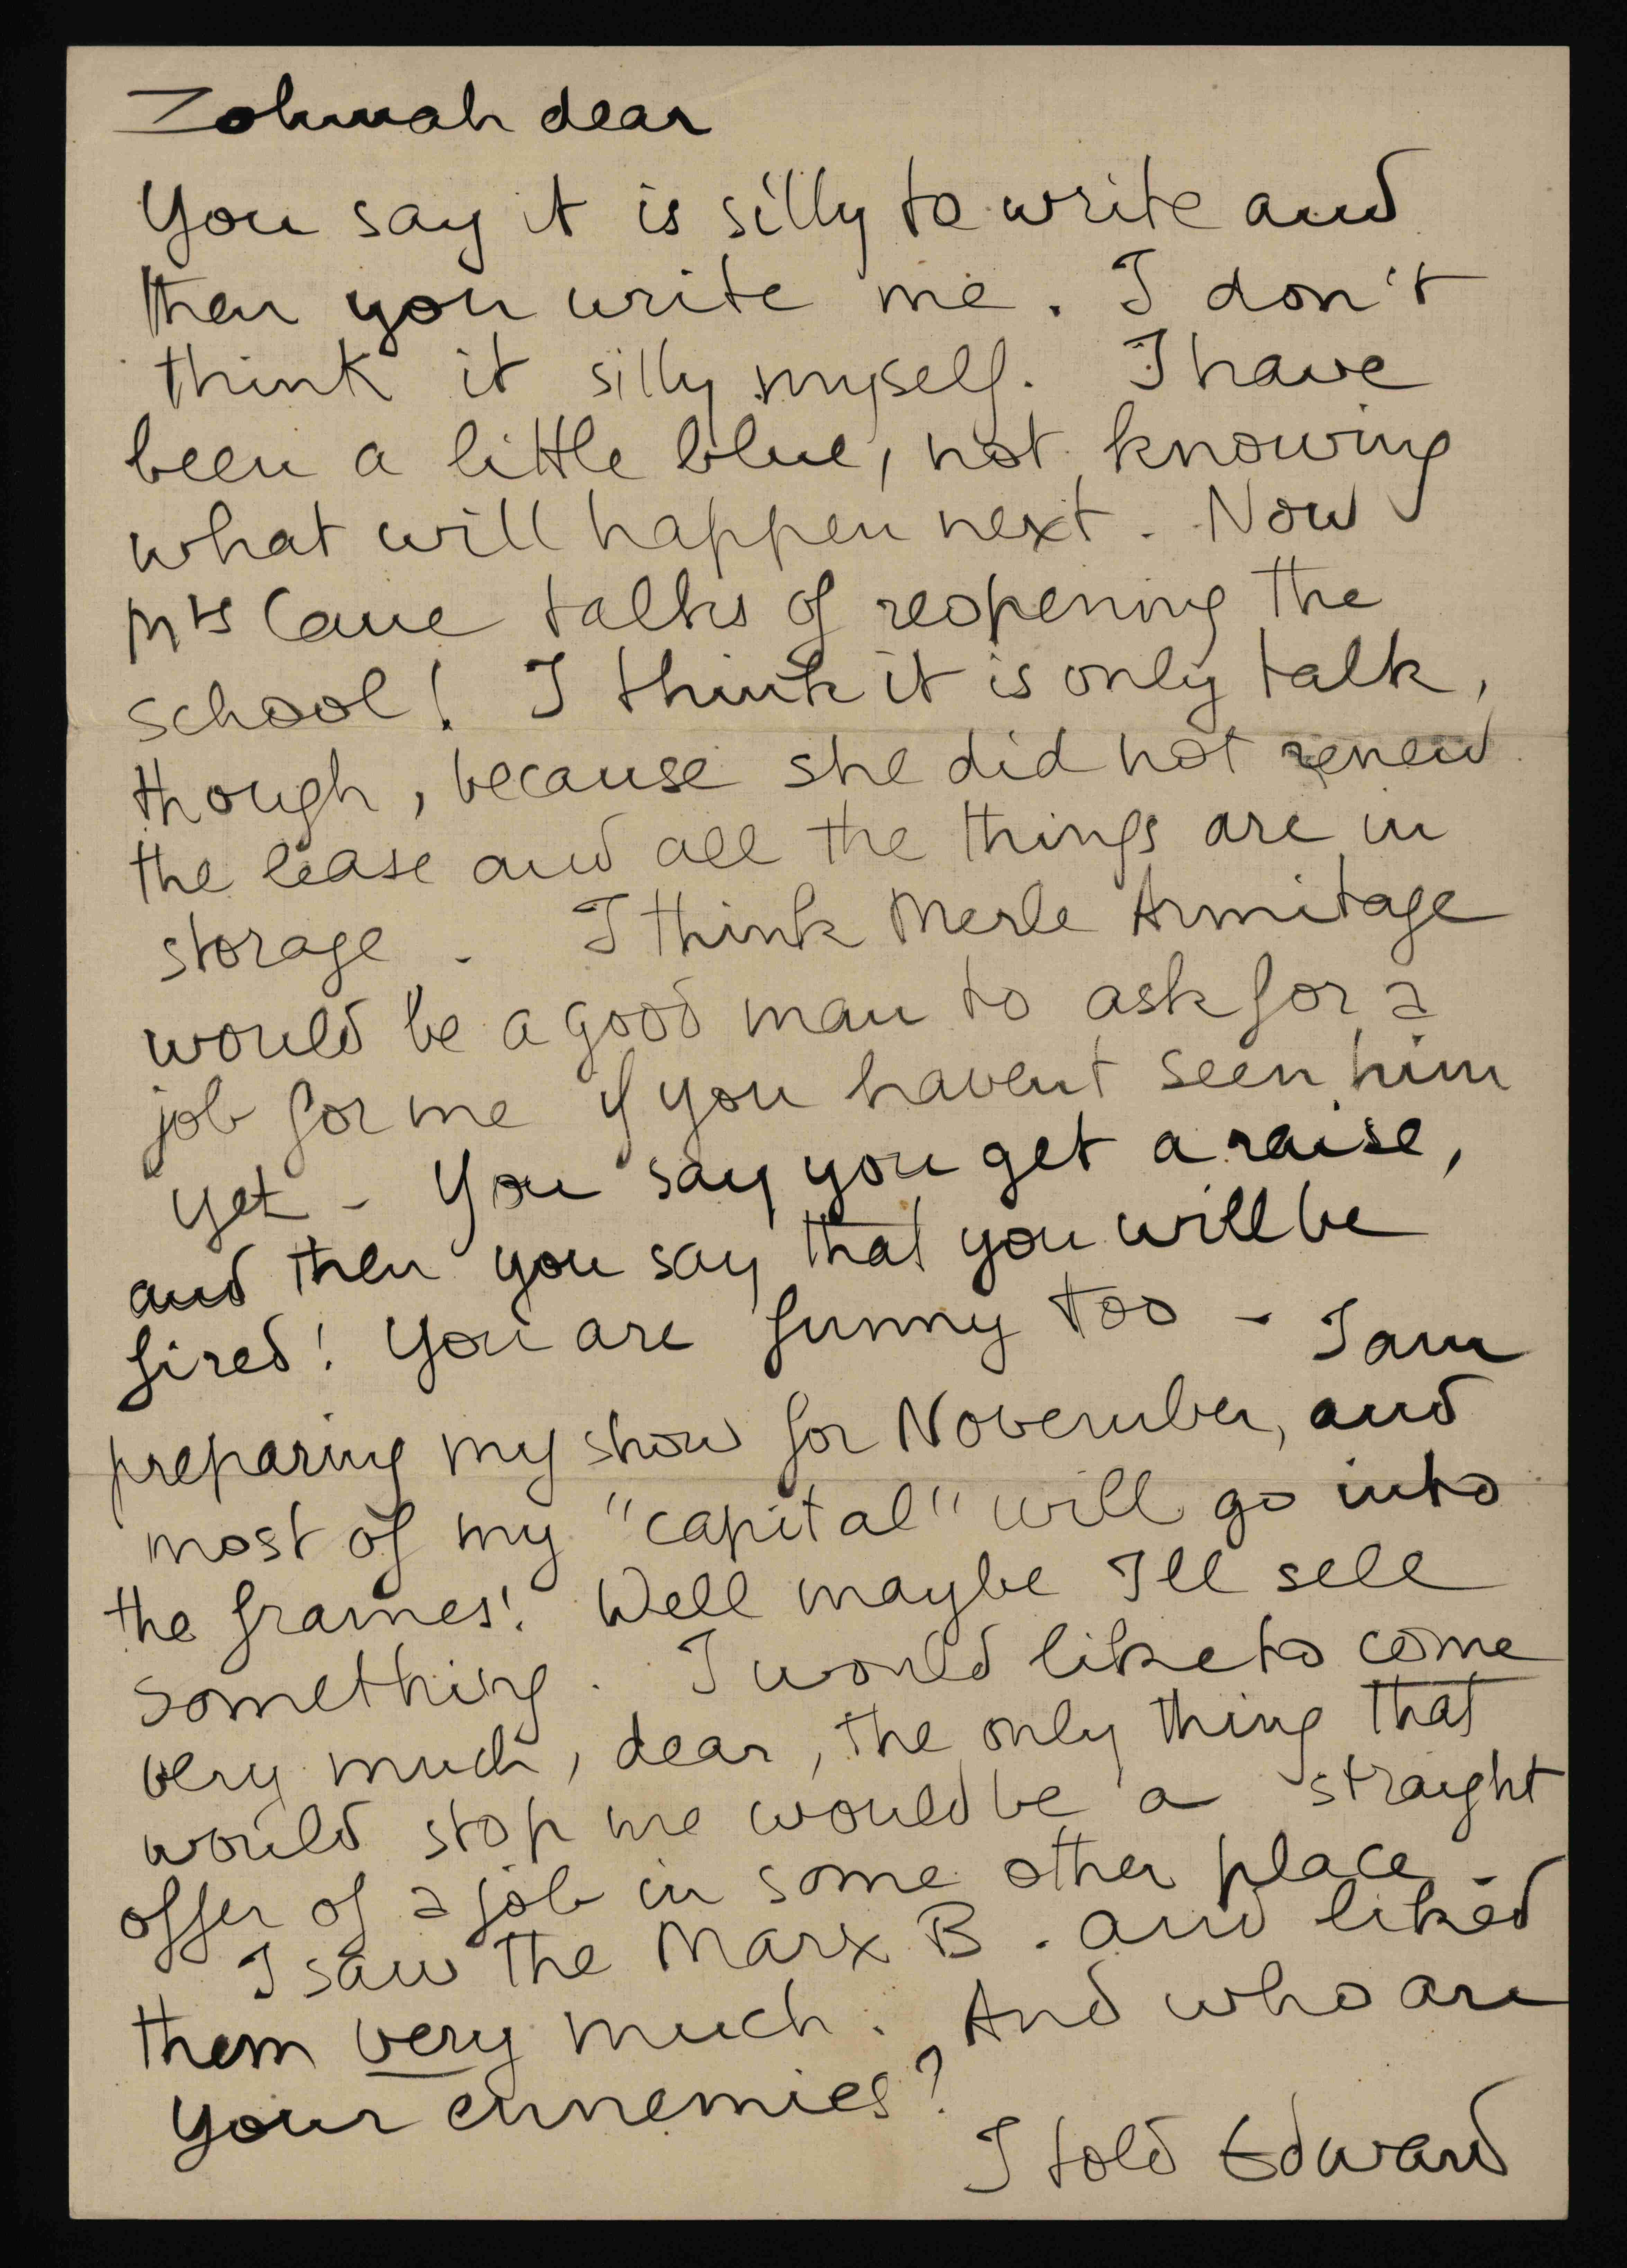 Zohmah dear
You say it is silly to write and
then you write me. I don't
think it silly myself. I have
been a little blue, not knowing
what will happen next. Now
Mrs Cane talks of reopening the
school! I think it is only talk,
though, because she did not renew
the lease and all the things are in
storage. I think Merle Armitage
would be a good man to ask for a
job for me if you havent seen him
yet - You say you get a raise,
and then you say that you will be
fired! You are funny too - I am
preparing my show for November, and
most of my "capital" will go into
the frames! Well maybe I'll sell
something. I would like to come
very much, dear, the only thing that
would stop me would be a straight
offer of a job in some other place.
I saw the Marx B. and liked
them very much. And who are
your ennemies?
I told Edward